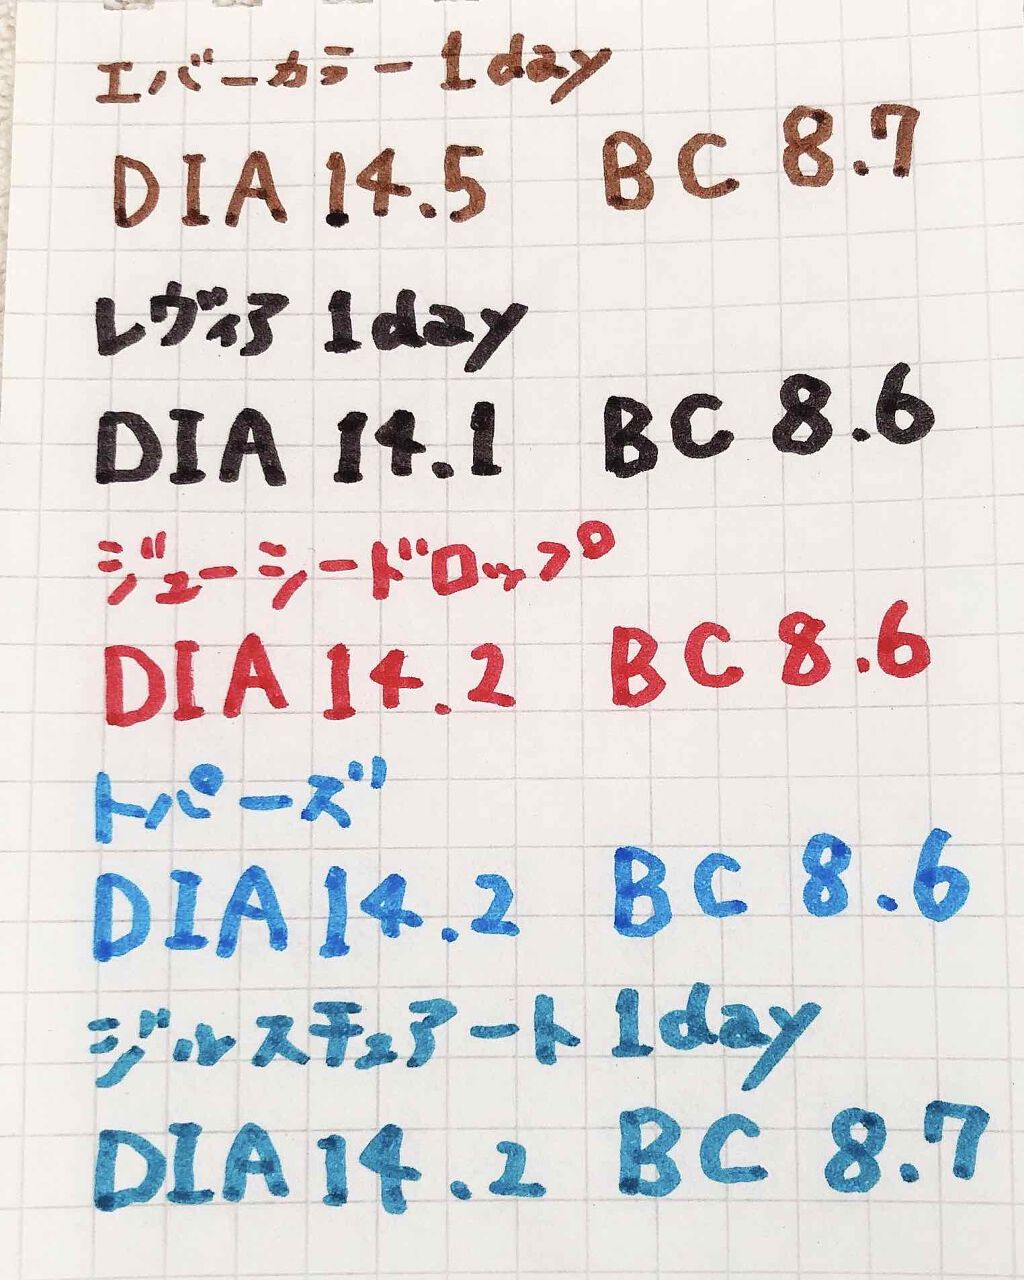 エバーカラー 1day
DIA 14.5 BC 8.7
レヴィア 1day
DIA 14.1 BC 8.6
ジューシードロップ
DIA 14.2 BC 8.6
トパーズ
DIA 14.2 BC 8.6
ジルスチュアート 1day
DIA 14.2 BC 8.7